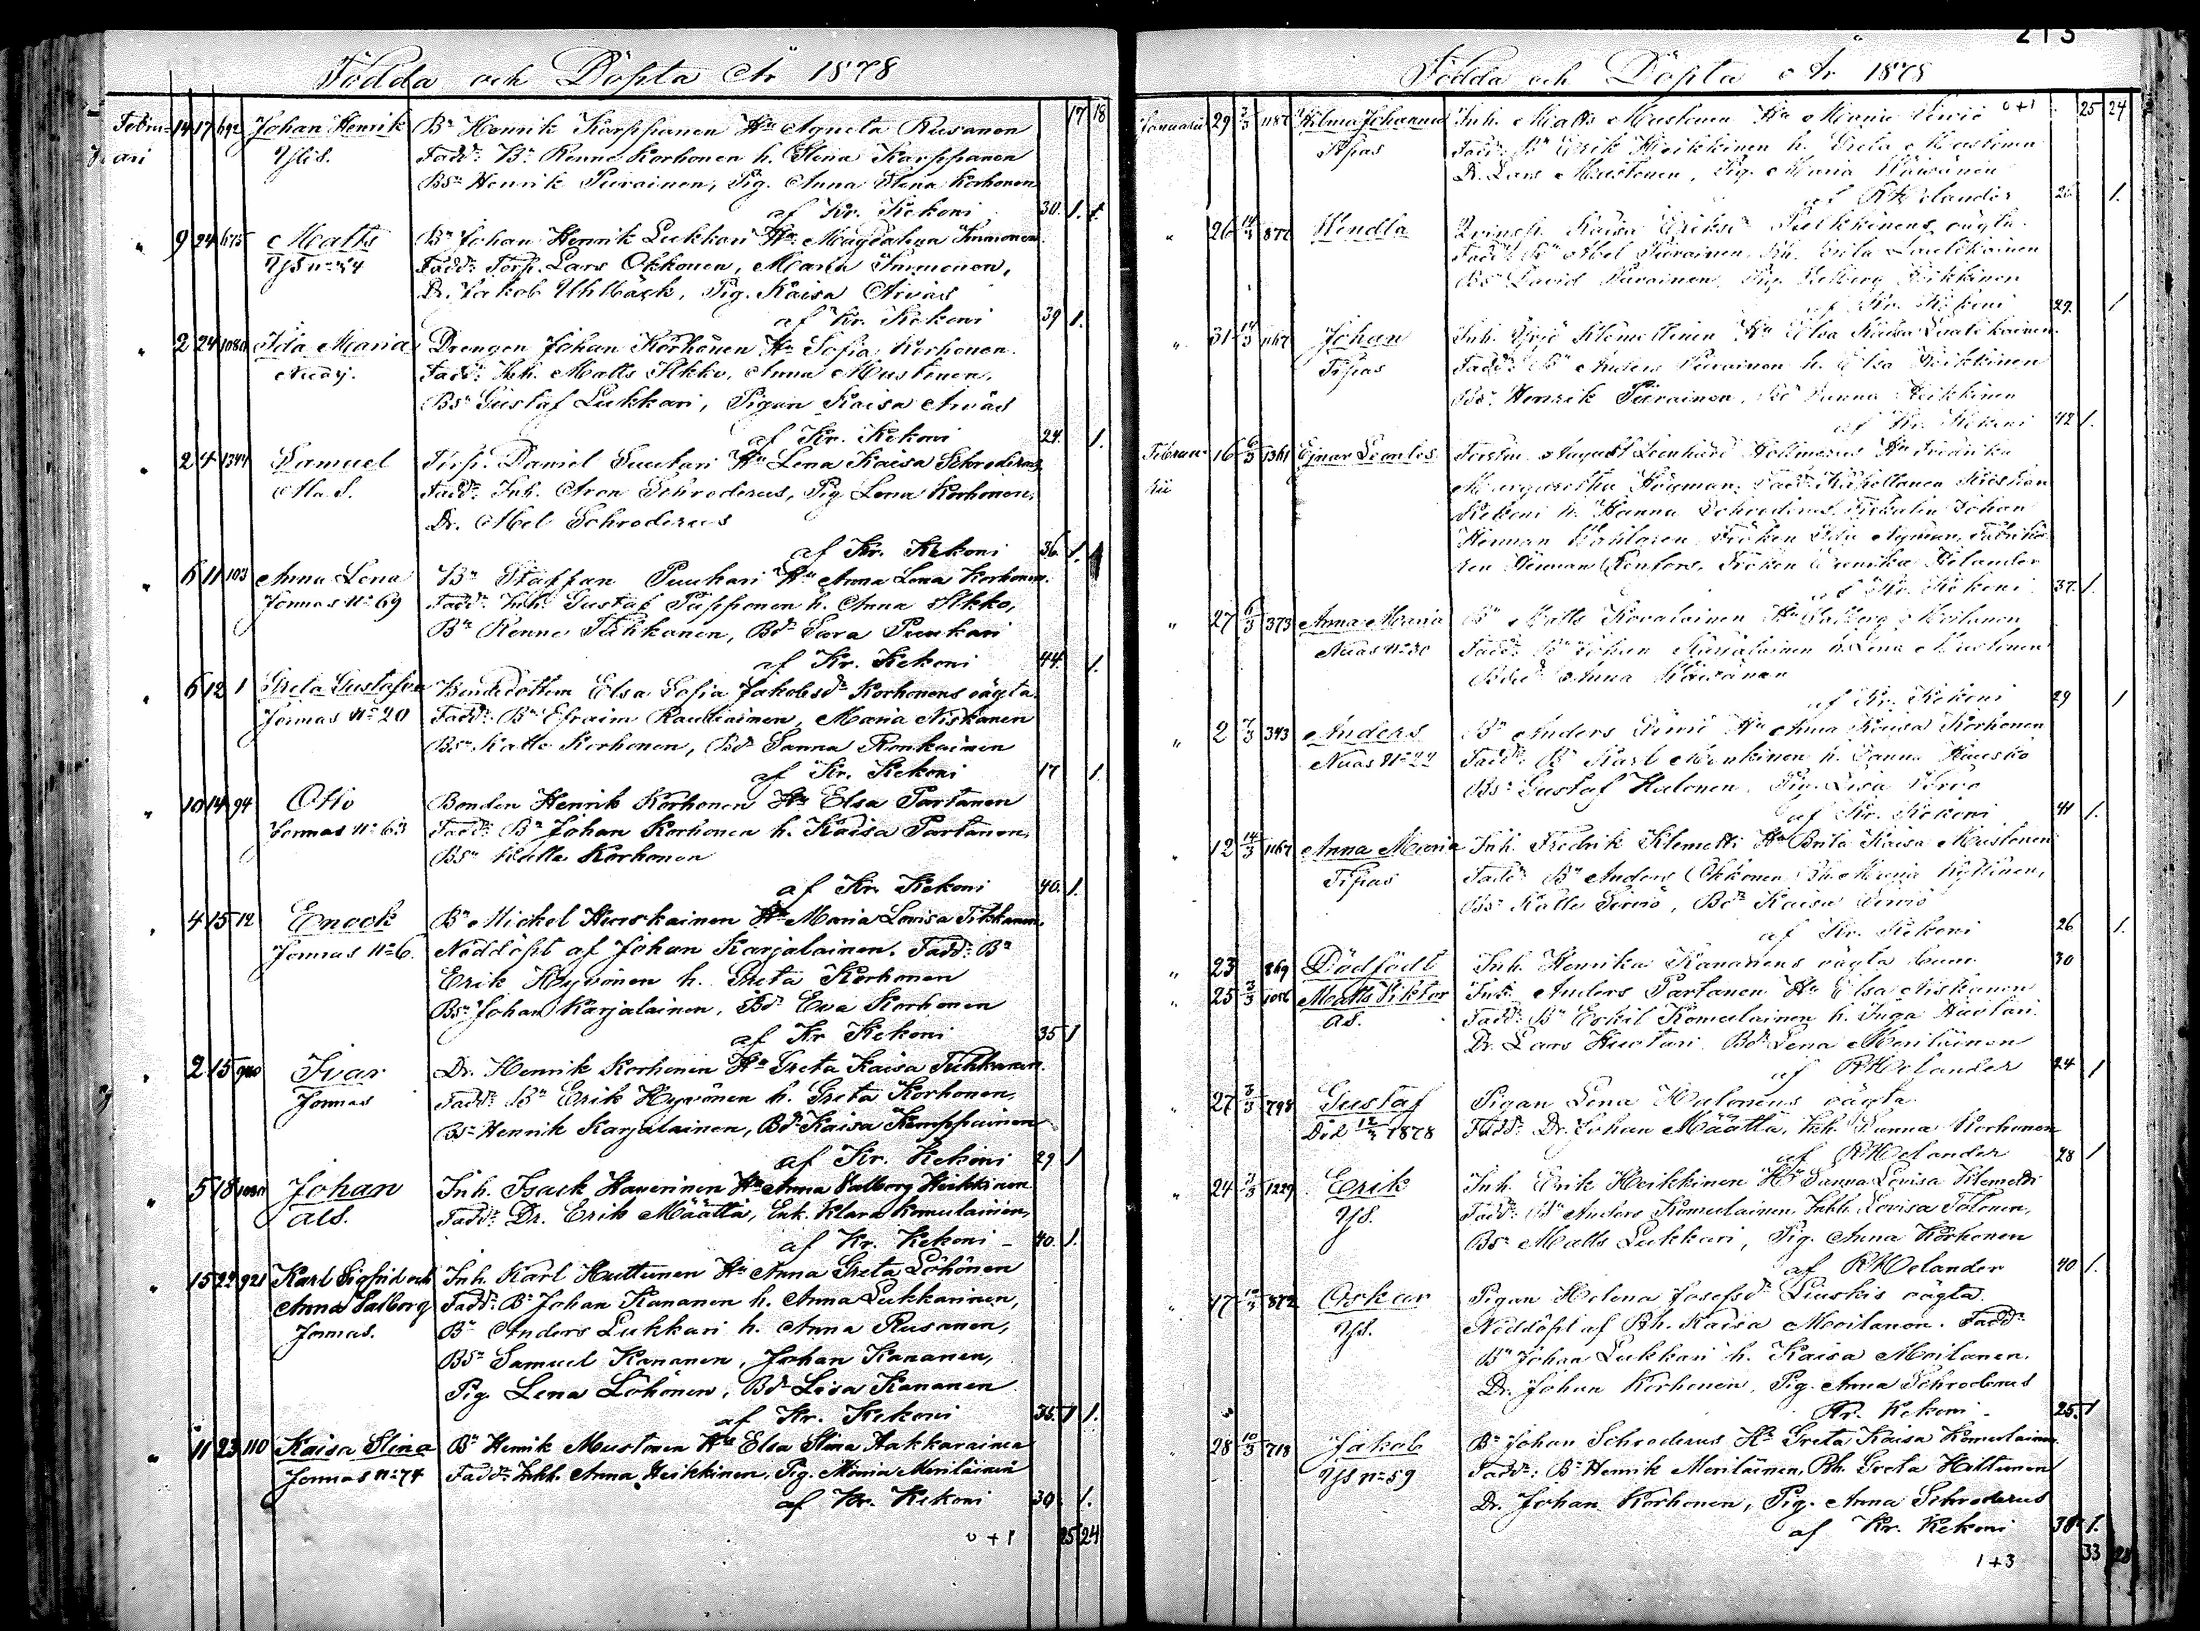 Födda och Döpta År 1878
17 18
Februari 14 17 642 Johan Henrik Bn Henrik Karppanen Hu Agneta Rusanen
Ylis. Fadd: Bn Renne Korhonen h. Stina Karppanen
Bsn Henrik Piirainen, Pig. Anna Stina Korhonen
af Kr. Kekoni 30. 1.
" 9 24 675 Matts Bn Johan Henrik Lukkari Hu Magdalena Immonen
YlS No 54 Fadd: Torp. Lars Okkonen, Maria Immonen,
Dr. Jakob Uhlbäck, Pig. Kaisa Arväs
af Kr. Kekoni 39 1.
" 2 24 1080 Ida Maria Drengen Johan Korhonen Hu Sofia Korhonen.
Nuasj. Fadd: Inh. Matts Ilkko, Anna Mustonen,
Bsn Gustaf Lukkari, Pigan Kaisa Arväs
af Kr. Kekoni 24. 1.
" 2 4 1344 Samuel Torp. Daniel Suutari Hu Lena Kaisa Schroderus
Fadd: Inh. Aron Schroderus, Pig Lena Korhonen,
Dr. Abel Schroderus
af Kr. Kekoni 36. 1.
" 6 11 103 Anna Lena Bn Staffan Puukari Hu Anna Lena Korhonen.
Jormas No 69 Fadd: Inh. Gustaf Pupponen h. Anna Ilkko,
Bn Renne Tuhkanen, Bdr Sara Puukari
af Kr. Kekoni 44. 1.
" 6 12 1 Greta Gustafva Bondedottern Elsa Sofia Jakobsdr Korhonens oägta
Jormas No 20 Fadd: Bn Efraim Rautiainen, Maria Niskanen
Bsn Kalle Korhonen, Bdr Sanna Ronkainen
af Kr. Kekoni 17 1.
" 10 14 94 Otto Bonden Henrik Korhonen Hu Elsa Partanen
Jormas No 63 Fadd: Bn Johan Korhonen h. Kaisa Partanen,
Bsn Kalle Korhonen
af Kr. Kekoni 40. 1.
" 4 15 12 Enock Bn Mickel Huoskainen Hu Maria Lovisa Tuhkanen.
Jormas No 6. Nöddöpt af Johan Karjalainen. Fadd: Bn
Erik Hyvönen h. Greta Korhonen
Bsn Johan Karjalainen, Bdr Eva Korhonen
af Kr Kekoni 35 1
" 2 15 940 Ivar Dr. Henrik Korhonen Hu Greta Kaisa Tuhkanen.
Jormas Fadd: Bn Erik Hyvönen h. Greta Korhonen,
Bsn Henrik Karjalainen, Bdr Kaisa Kemppainen
af Kr. Kekoni 29 1
" 5 18 Johan Inh. Isack Haverinen Hu Anna Valborg Heikkinen
Als. Fadd: Dr. Erik Määttä, Enk. Klara Komulainen,
af Kr. Kekoni - 40. 1.
" 15 22 921 Karl Sigfrid och Inh. Karl Huttunen Hu Anna Greta Löhönen
Anna Valborg Fadd: Bn Johan Kananen h. Anna Lukkarinen,
Jormas. Bn Anders Lukkari h. Anna Rusanen,
Bsn Samuel Kananen, Johan Kananen,
Pig Lena Löhönen, Bdr Lisa Kananen
af Kr. Kekoni 35. 1 1.
" 11 23 110 Kaisa Stina Bn Henrik Mustonen Hu Elsa Stina Hakkarainen
Jormas No 74 Fadd: Inhh. Anna Heikkinen, Pig. Maria Meriläinen
af Kr. Kekoni 30. 1.
0+1 25 24
213
Födda och Döpta År 1878
0+1 25 24
Januari 29 3/3 1187 Hilma Johanna Inh. Matts Mustonen Hu Maria Servio
Tipas Fadd: Bn Erik Heikkinen h. Greta Mustonen
Dr. Lars Mustonen, Pig. Maria Väisänen
af RHelander 26 1.
" 26 14/3 872 Hendla Qvinsp. Kaisa Eriksdr Pulkkinens oägta.
Fadd: Bn Abel Piirainen, Bh. Brita Lauttikainen
Bsn David Piirainen, Pig. Valborg Heikkinen
af Kr. Kekoni 29. 1
" 31 14/3 1167 Johan Inh. Yrjö Klemettinen Hu Elsa Kaisa
Tipas Fadd: Bn Anders Piirainen h. Elsa Heikkinen
Bsn Henrik Piirainen, Bdr Sanna Heikkinen
af Kr. Kekoni 42 1.
Februarii 16 6/3 1361 Ejnar Leonles Forstm. August Leonhard Hollmerus Hu Fredrika
Margaretha Högman. Fadd: Kapellanen Kristian
Kekoni h. Hanna Schroderus, Fiskalen Johan
Herman Fröken Ida Högman, Fabrikö-
ren Herman Renfors, Fröken Helander
af Kr. Kekoni 37. 1.
" 27 6/3 373 Anna Maria Bn Matts Kovalainen Hu Valborg Moilanen
Nuas No 30 Fadd: Bn Johan Karjalainen h. Lena Mustonen
Bdr Anna Väisänen
af Kr. Kekoni 29 1
" 2 7/3 343 Anders Bn Anders Servio Hu Anna Kaisa Korhonen
Nuas No 22 Fadd: Bn Karl Mankinen h. Sanna Kuusko
Bsn Gustaf Halonen. Pig. Lisa Servo
af Kr. Kekoni 41 1.
" 12 14/3 1167 Anna Maria Inh. Fredrik Klemetti Hu Brita Kaisa Mustonen
Tipas Fadd: Bn Anders Okkonen, Bh. Maria Kyllönen,
Bsn Kalle Servio, Bdr Kaisa Servio
af Kr. Kekoni 26 1.
" 23 869 Dödfödt Inh. Henrika Kananens oägta barn. 30
" 25 3/3 1056 Matts Viktor Inh. Anders Partanen Hu Elsa Niskanen
As. Fadd: Bn Eskil Komulainen h. Inga Huotari.
Dr. Lars Huotari Bdr Lena Meriläinen
af RHelander 24 1
" 27 3/3 798 Gustaf Pigan Lena Halonens oägta.
Död 12/7 1878 Fadd: Dr. Johan Määttä, Inh. Sanna Korhonen
af RHelander 28 1
" 24 3/3 1229 Erik Inh. Erik Heikkinen Hu Sanna Lovisa Klemetti
YS. Fadd: Bn Anders Komulainen, Inhh. Lovisa Tolonen,
Bsn Matts Lukkari, Pig. Anna Korhonen
af RHelander 40 1.
" 17 10/3 872 Oskar Pigan Helena Josefsdr Liuskis oägta.
YS. Nöddöpt af Bh. Kaisa Moilanen. Fadd:
Bn Johan Lukkari h. Kaisa Moilanen.
Dr. Johan Korhonen, Pig. Anna Schroderus
Kr. Kekoni - 25. 1
" 28 10/3 718 Jakob Bn Johan Schroderus Hu Greta Kaisa Komulainen.
YlS No 59 Fadd: Bn Henrik Meriläinen, Bh. Greta Hiltunen
Dr. Johan Korhonen, Pig. Anna Schroderus
af Kr. Kekoni 38 1.
1+3 33 28